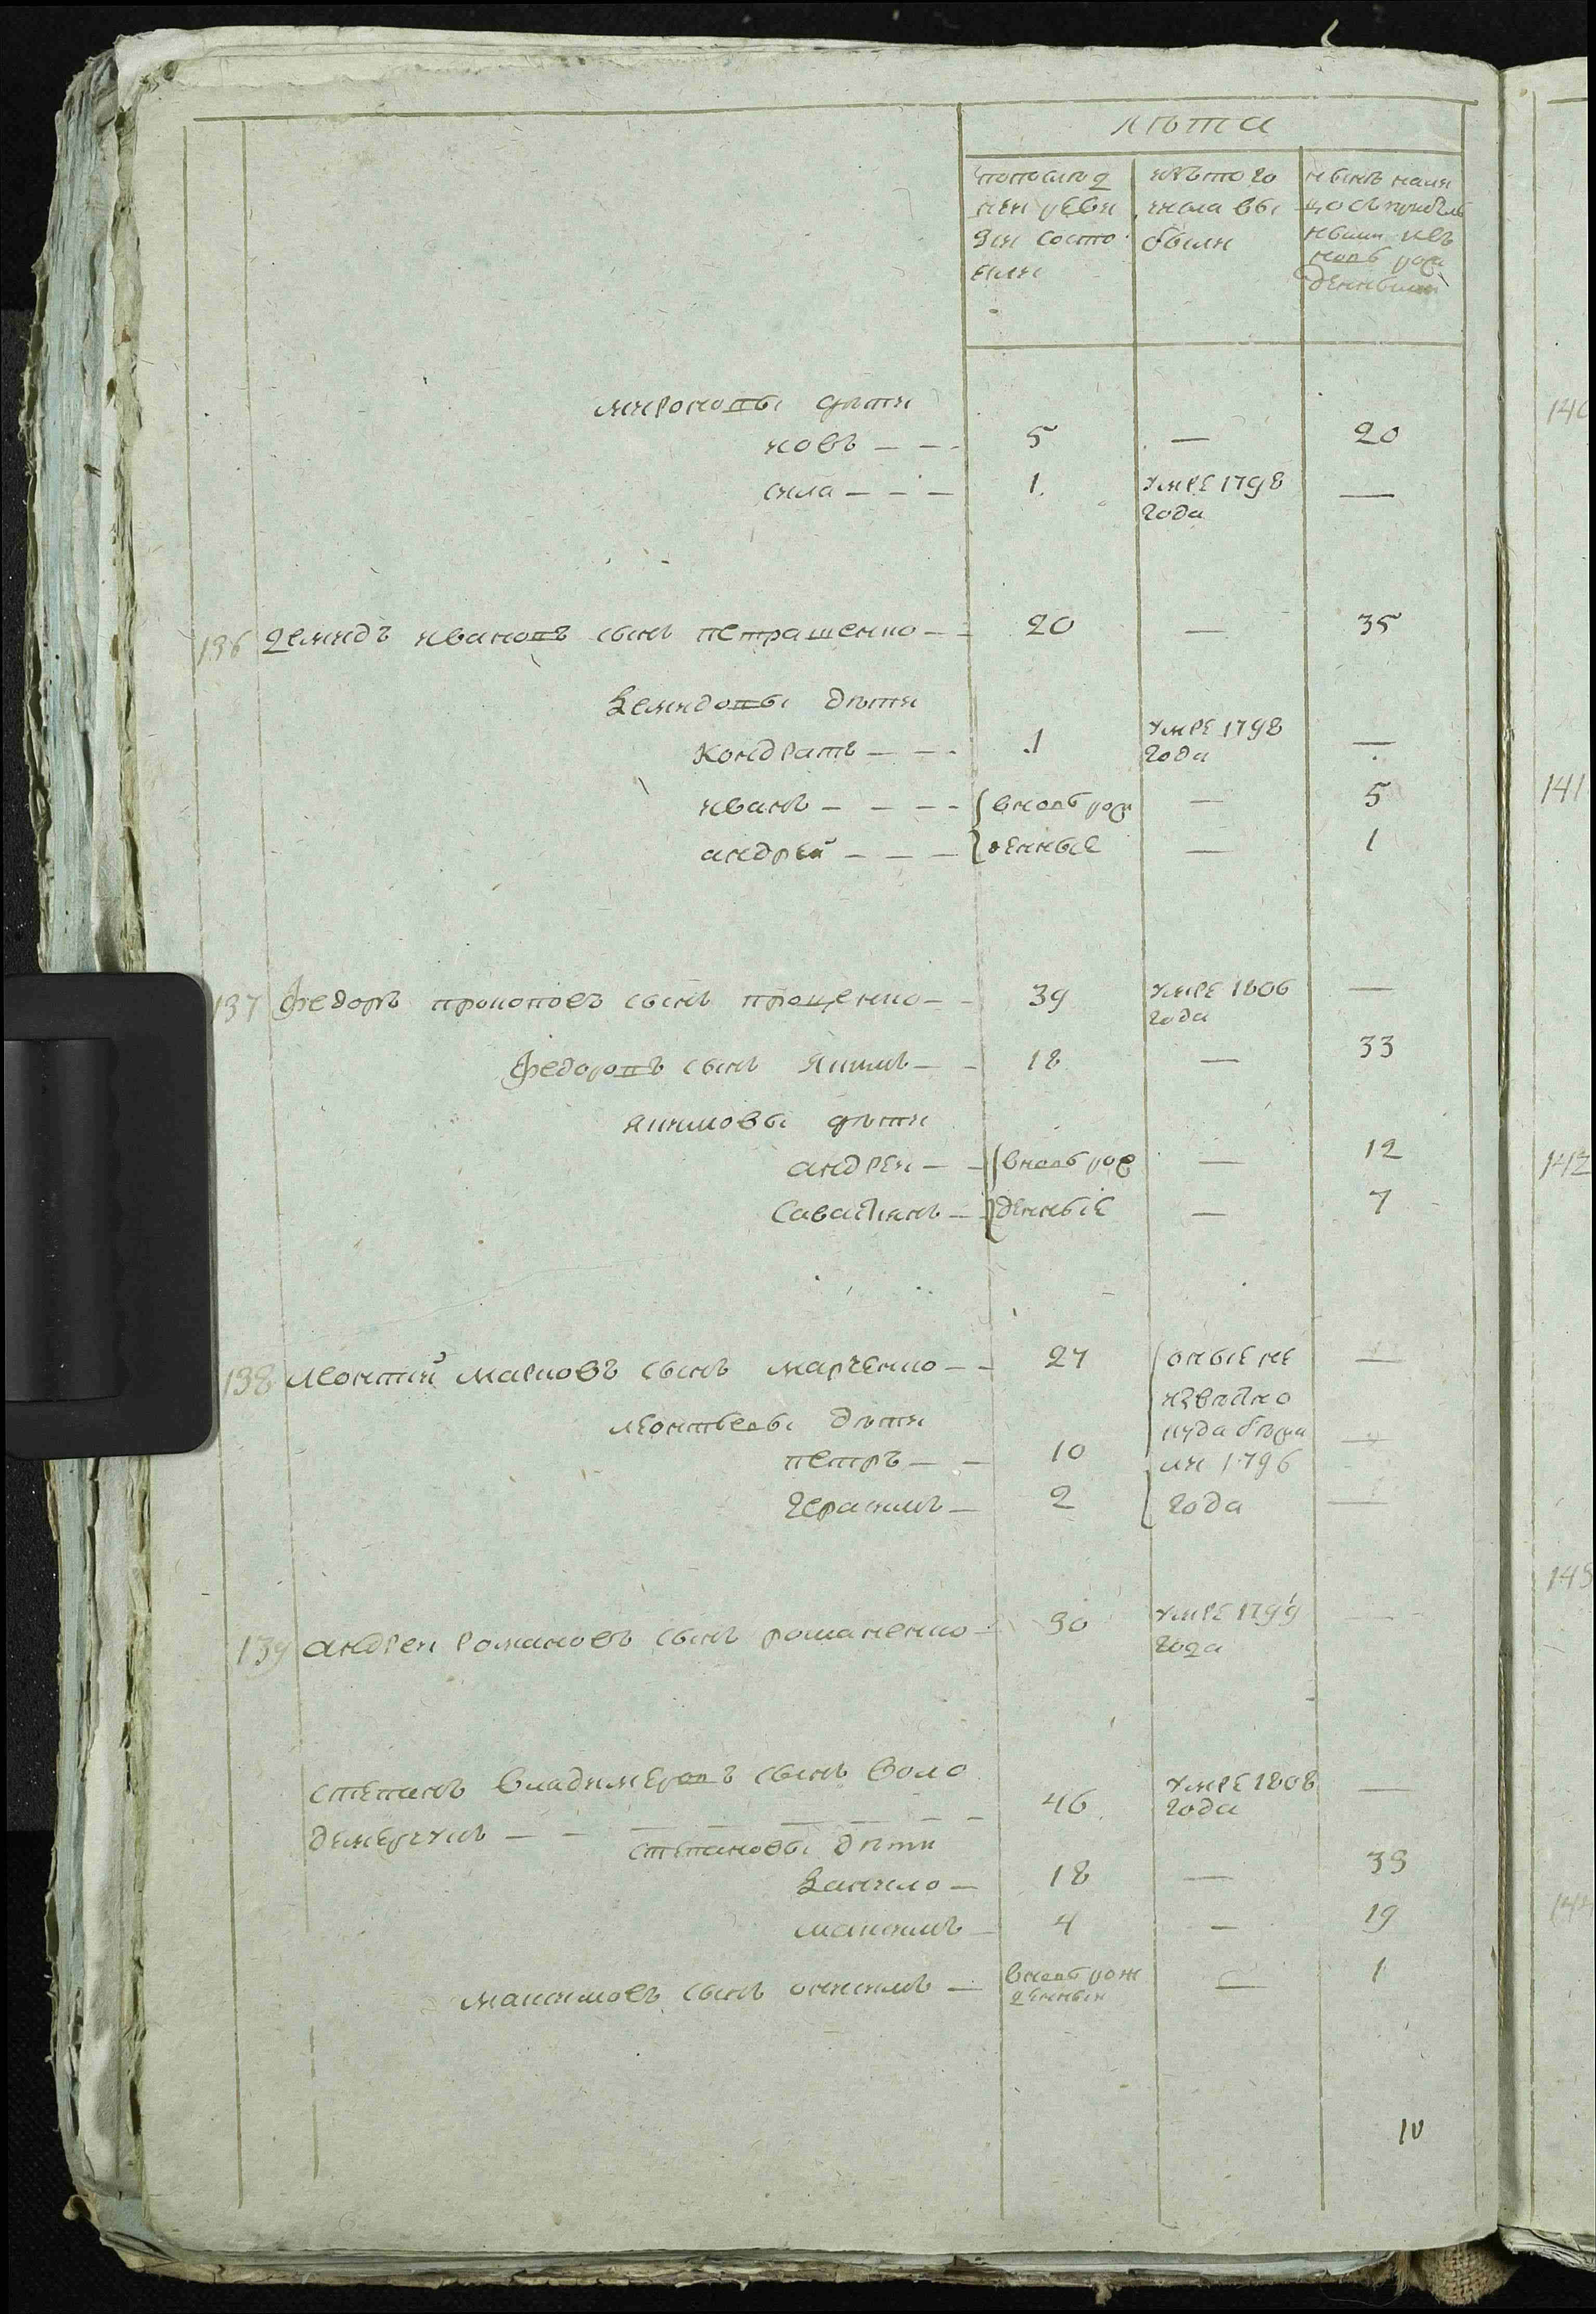 лѣта
попослѣд
ней реви
зіи состо
яли
изъ того
числа вы
были
нынѣ на ли
цо съ прибыл
ными изъ
новъ рож
денными
мироновы дѣти
иовъ — — — 5 — 20
сила — — — 1 умре 1798
года —
136 демидъ ивановъ сынъ петрашенко — — 20 — 35
демидовы дѣти
кондратъ — — — 1 умре 1798
года —
иванъ — — — — вновь рож — 5
андрей — — — денные — 1
137 федоръ прокоповъ сынъ прощенко — — 39 умре 1806
года —
федоровъ сынъ якимъ — — 18 — 33
якимовы дѣти
андреи — — вновь рож — 12
савастиянъ — денные — 7
138 леонтий марковъ сынъ марченко — — 27 оные не —
извѣстно
леонтьевы дѣти куда бѣжа
петръ — — 10 ли 1796 —
герасимъ — 2 года —
139 андреи романовъ сынъ романенко — 30 умре 1799 —
года
степанъ владимеровъ сынъ воло
демерчукъ — — — — — — — 46 умре 1808
года —
степановы дѣти
данило — 18 — 33
максимъ — 4 — 19
максимовъ сынъ онисимъ — вновь рож
денныи — 1
10
140
141
142
143
144